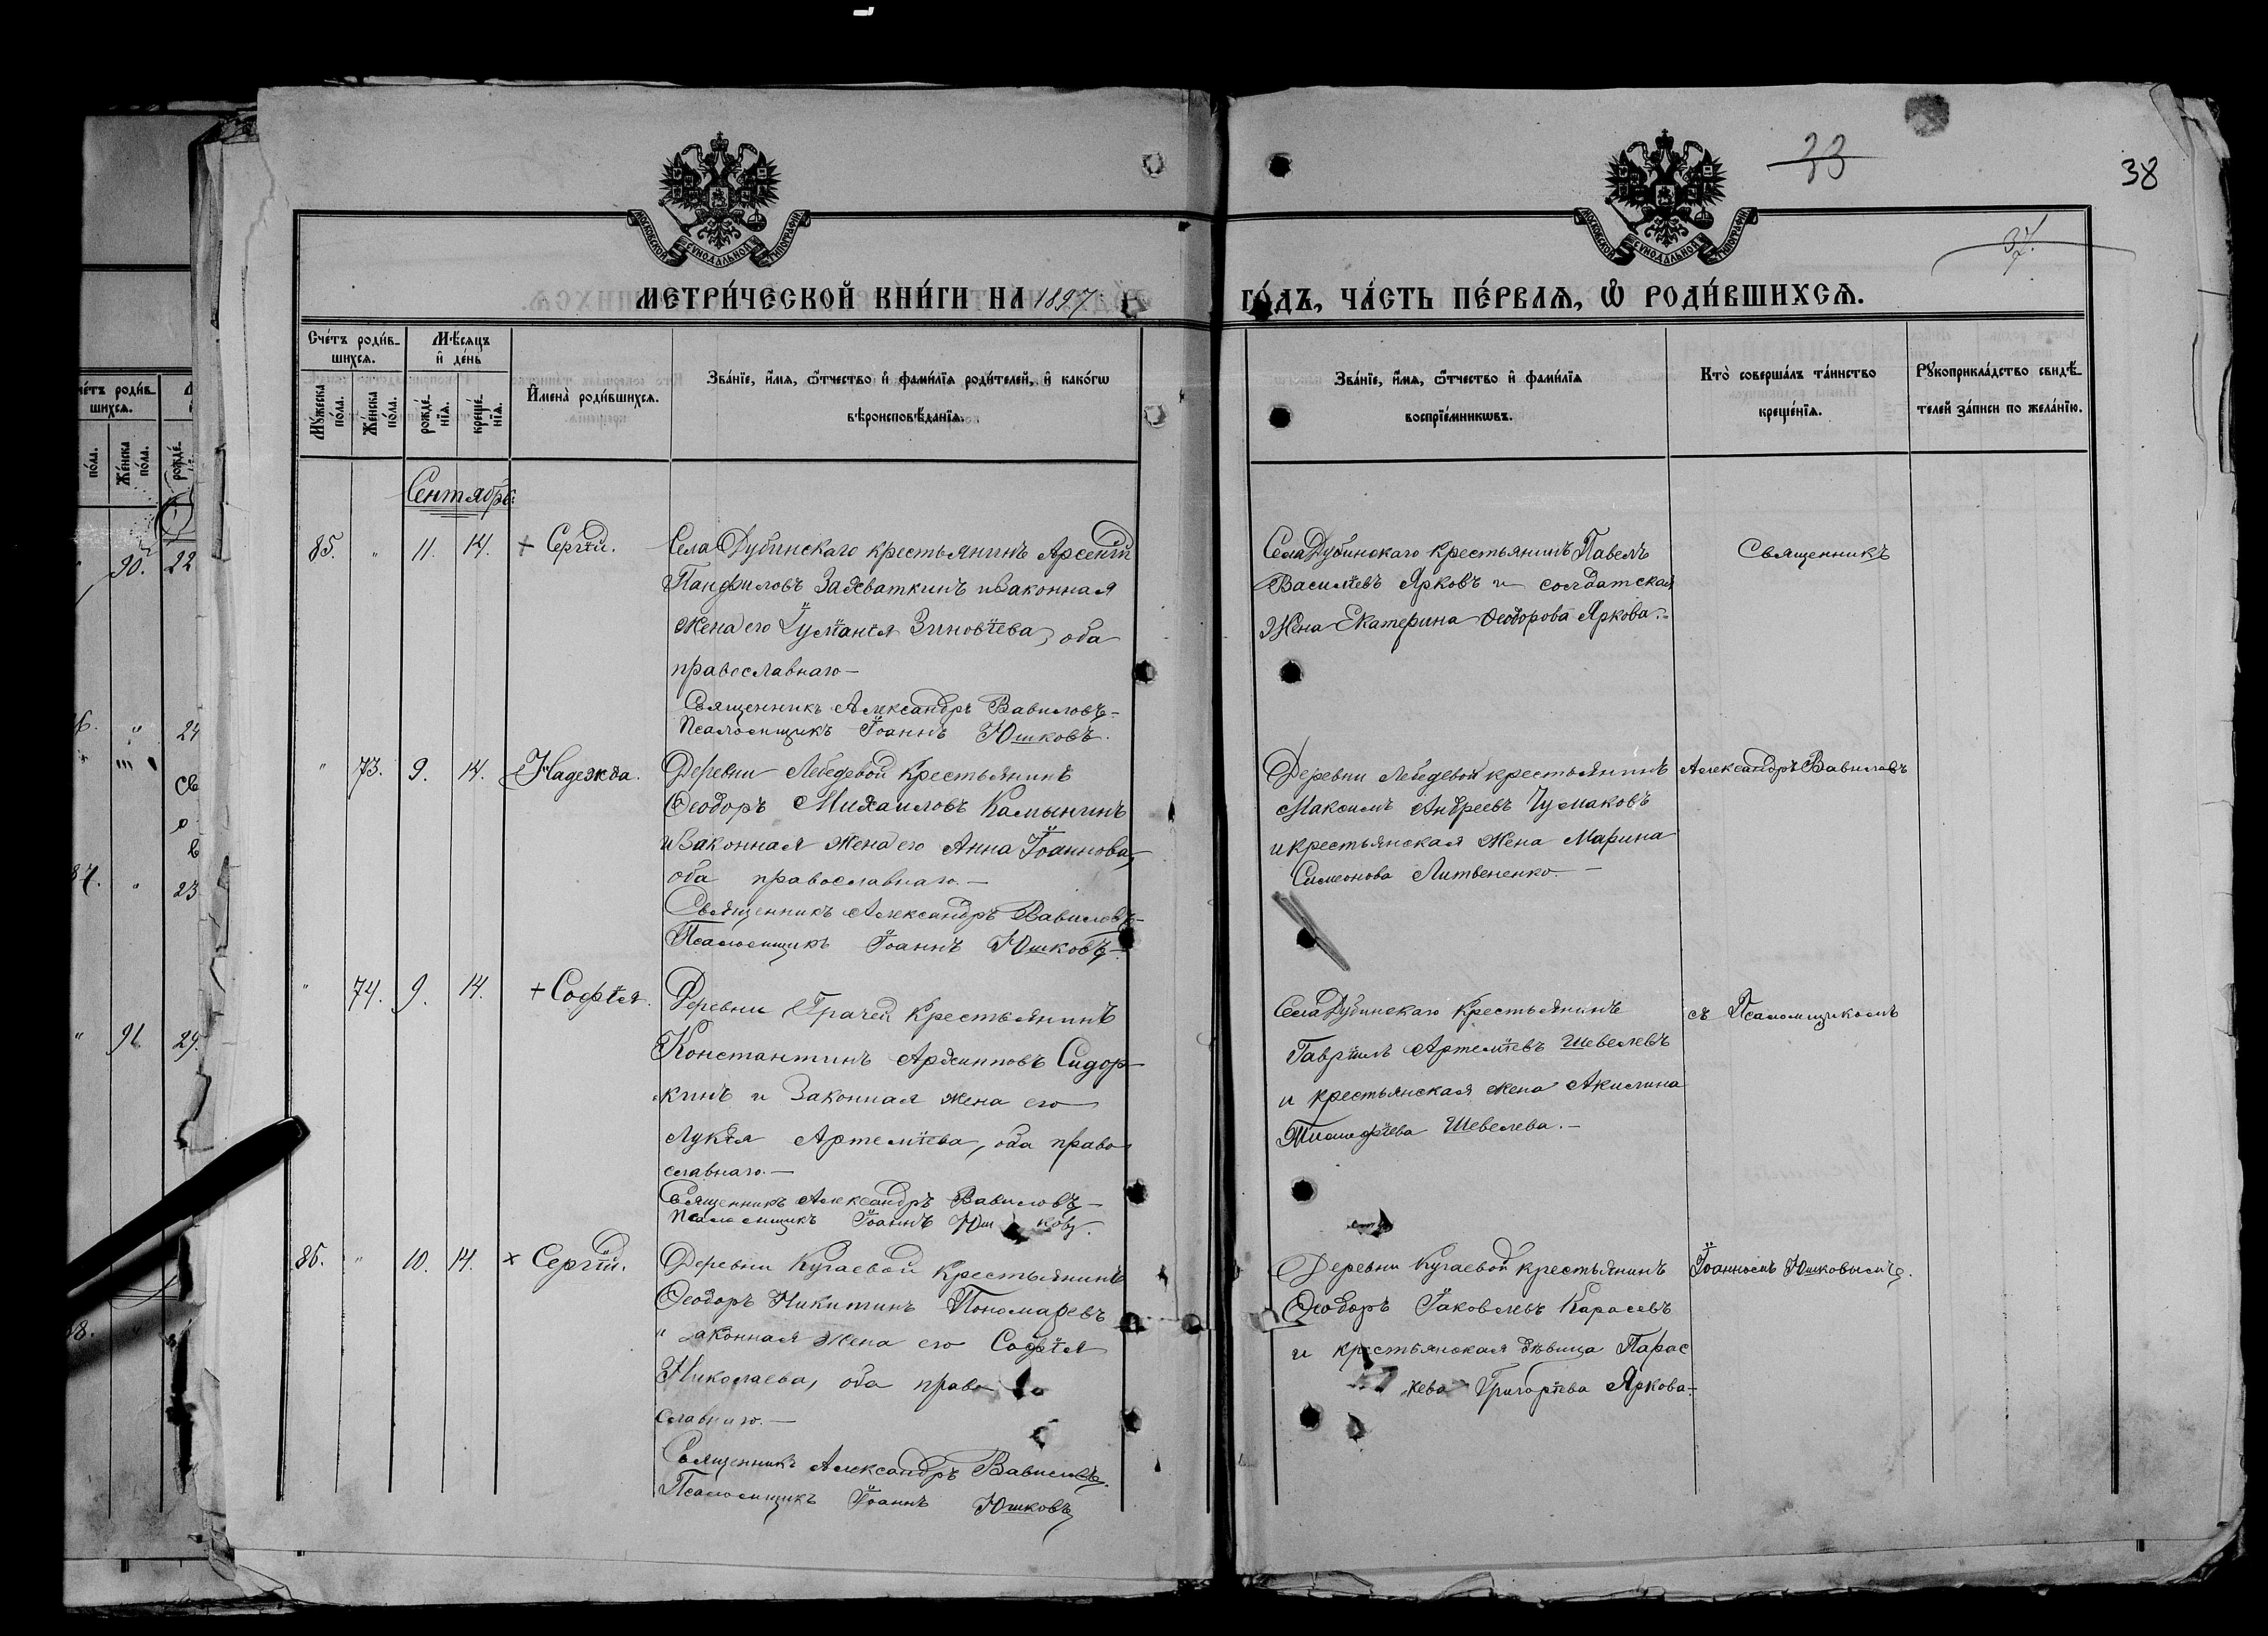 33
38
37.
МОСКОВСКОЙ СѴНОДАЛЬНОЙ ТИПОГРАФІИ
МОСКОВСКОЙ СѴНОДАЛЬНОЙ ТИПОГРАФІИ
МЕТРИ́ЧЕСКОЙ КНИ́ГИ НА 1897 ГО́ДЪ, ЧА́СТЬ ПЕ́РВАѦ, Ѽ РОДИ́ВШИХСѦ.
Сче́тъ роди́в-
шихсѧ.
Мѣ́сѧцъ
и҆ де́нь
Мꙋ́жеска
по́ла.
Же́нска
по́ла.
рожде́-
нїѧ.
креще́-
нїѧ.
И҆мена̀ роди́вшихсѧ.
Зва́нїе, и҆́мѧ, ѻ҆́тчество и҆ фами́лїѧ роди́телей, и҆ како́гѡ
вѣроисповѣ́данїѧ.
Зва́нїе, и҆́мѧ, ѻ҆́тчество и҆ фами́лїѧ
воспрїе́мникѡвъ.
Кто̀ соверша́лъ та́инство
креще́нїѧ.
Рꙋкоприкла́дство свидѣ́-
телей за́писи по жела́нїю.
Сентябрь
85. " 11. 14. + Сергій.
Села Дубинскаго крестьянинъ Арсеній
Панфиловъ Захваткинъ и законная
жена его Іуліанія Зиновіева, оба
православнаго —
Священникъ Александръ Вавиловъ
Псаломщикъ Іоаннъ Юшковъ.
Села Дубинскаго крестьянинъ Павелъ
Василіевъ Ярковъ и солдатская
жена Екатерина Ѳеодорова Яркова.
Священникъ
" 73. 9. 14. Надежда.
Деревни Лебедевой крестьянинъ
Ѳеодоръ Михаиловъ Камынинъ
и законная жена его Анна Іоаннова,
оба православнаго. —
Священникъ Александръ Вавиловъ
Псаломщикъ Іоаннъ Юшковъ
Деревни Лебедевой крестьянинъ
Максимъ Андреевъ Чумаковъ
и крестьянская жена Марина
Симеонова Литвененко. —
Александръ Вавиловъ
" 74. 9. 14. + Софія.
Деревни Грачей крестьянинъ
Константинъ Архипповъ Сидор-
кинъ и законная жена его
Лукія Артеміева, оба право
славнаго. —
Священникъ Александръ Вавиловъ
Псаломщикъ Іоаннъ Юшковъ.
Села Дубинскаго крестьянинъ
Гавріилъ Артеміевъ Шевелевъ
и крестьянская жена Акилина
Тимофѣева Шевелева. —
съ Псаломщикомъ
86. " 10. 14. × Сергій.
Деревни Кугаевой крестьянинъ
Ѳеодоръ Никитинъ Пономаревъ
и законная жена его Софія
Николаева, оба право
славнаго. —
Священникъ Александръ Вавиловъ
Псаломщикъ Іоаннъ Юшковъ
Деревни Кугаевой крестьянинъ
Ѳеодоръ Іаковлевъ Карасевъ
и крестьянская дѣвица Парас
кева Григоріева Яркова
Іоанномъ Юшковымъ.